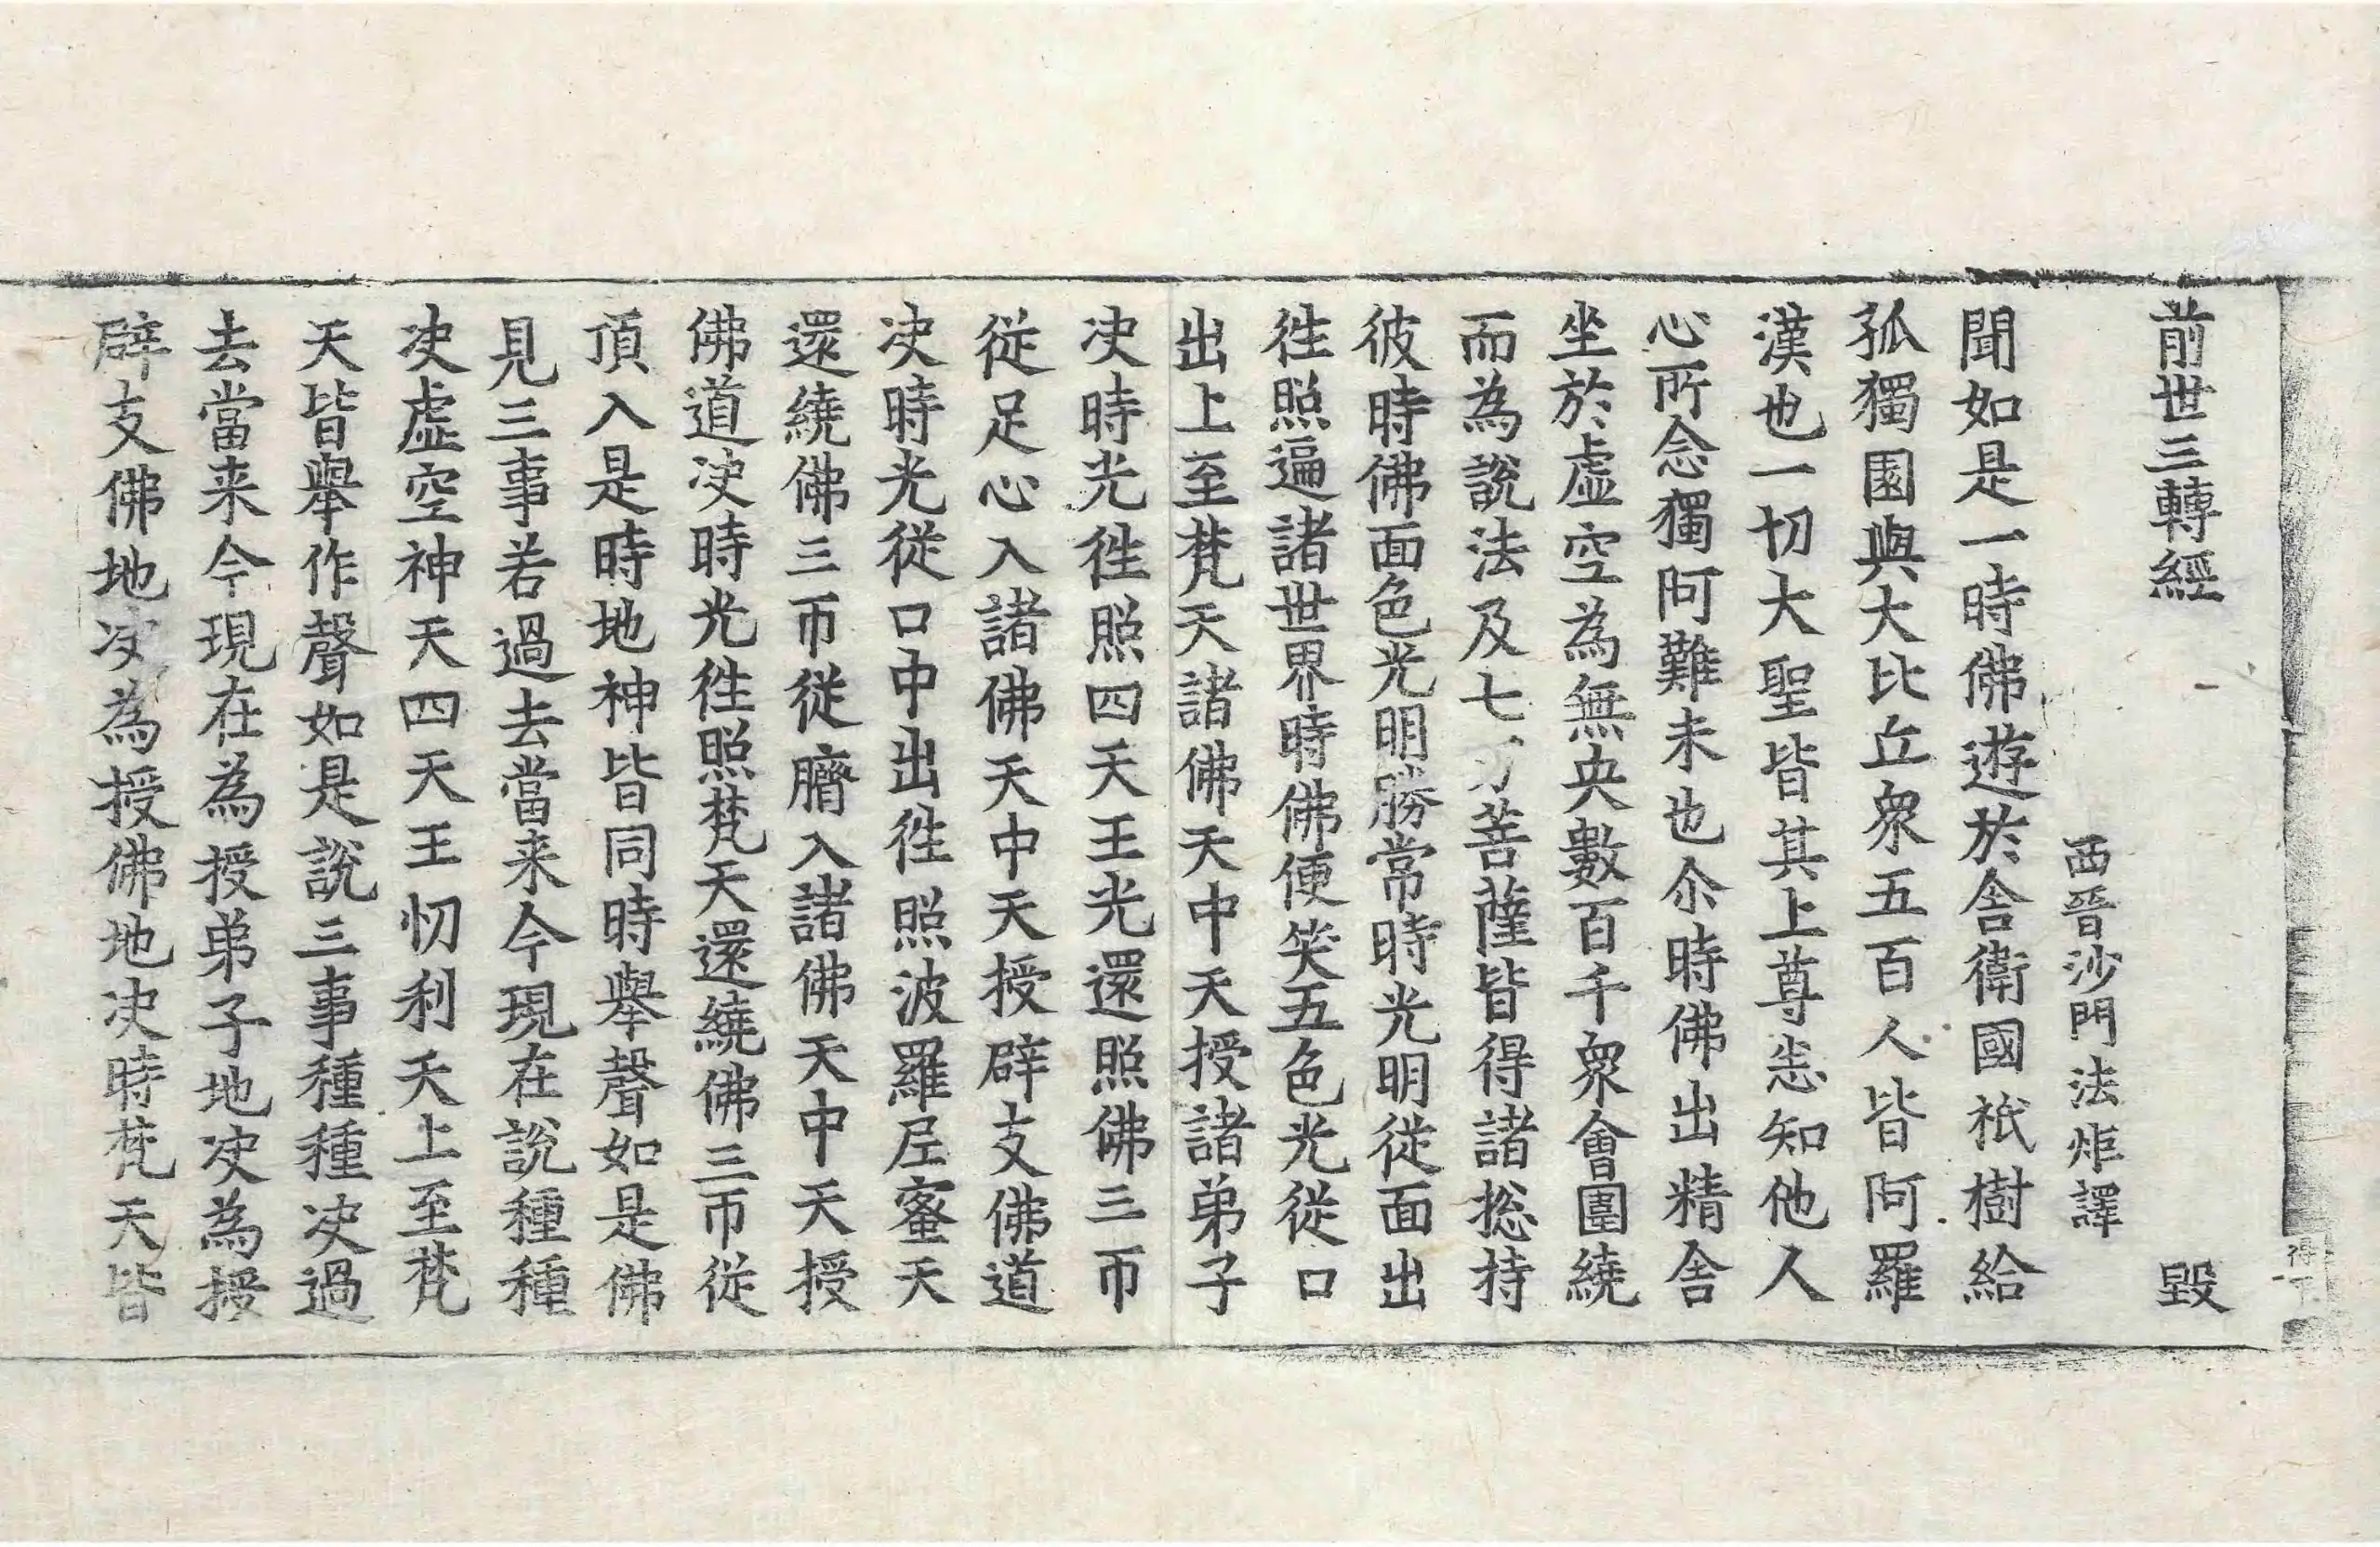 前世三轉經 毀
西晉沙門法炬譯
聞如是一時佛遊於舍衛國祇樹給
孤獨園與大比丘衆五百人皆阿羅
漢也一切大聖皆其上尊悉知他人
心所念獨阿難未也尒時佛出精舍
坐於虛空為無央數百千衆會圍繞
而為說法及七菩薩皆得諸捴持
彼時佛面色光明勝常時光明從面出
徃照遍諸世界時佛便笑五色光從口
出上至梵天諸佛天中天授諸弟子
决時光徃照四天王光還照佛三帀
從足心入諸佛天中天授辟支佛道
决時光從口中出徃照波羅尼蜜天
還繞佛三帀從臍入諸佛天中天授
佛道决時光徃照梵天還繞佛三帀從
頂入是時地神皆同時舉聲如是佛
見三事若過去當来今現在說種種
决虛空神天四天王忉利天上至梵
天皆舉作聲如是說三事種種决過
去當来今現在為授弟子地决為授
辟支佛地决為授佛地决時梵天皆